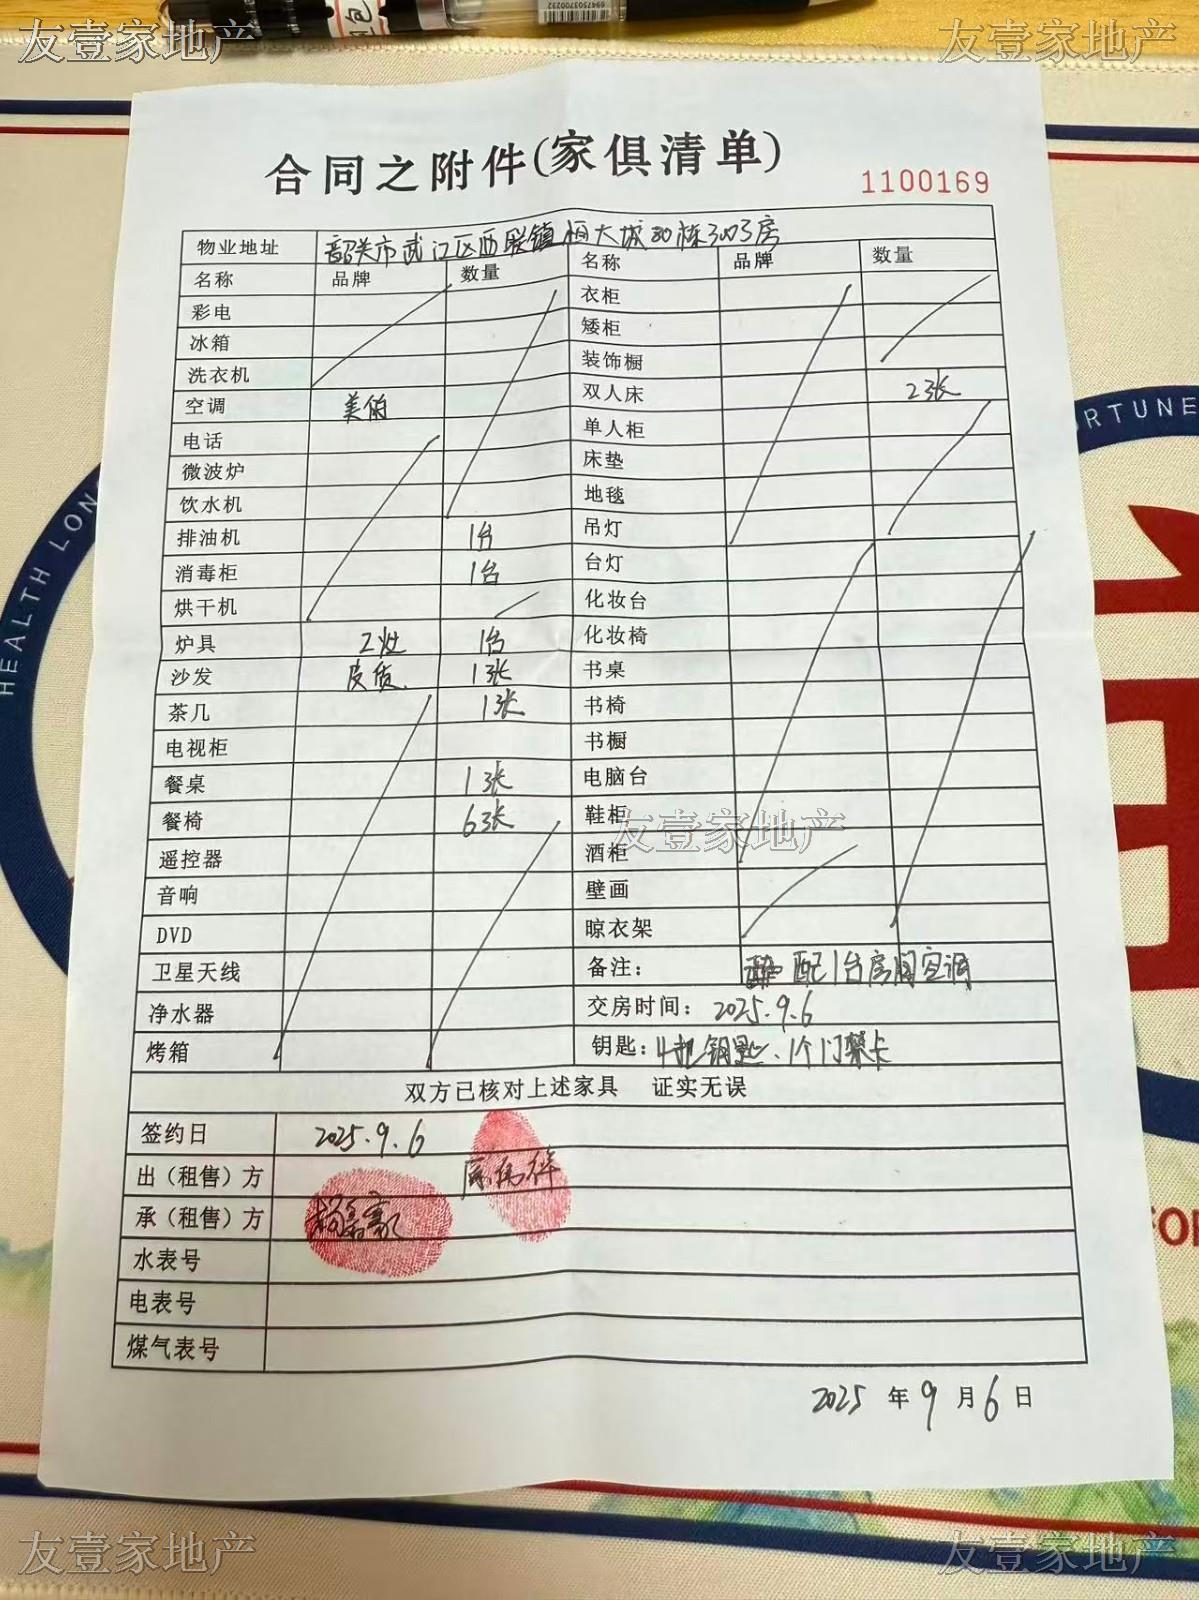 友壹家地产
友壹家地产
6947503700232
合同之附件(家俱清单)
1100169
物业地址 韶关市武江区西联镇恒大城30栋3003房
名称 品牌 数量 名称 品牌 数量
彩电 衣柜
冰箱 矮柜
洗衣机 装饰橱
空调 美的 双人床 2张
电话 单人柜
微波炉 床垫
饮水机 地毯
排油机 1台 吊灯
消毒柜 1台 台灯
烘干机 化妆台
炉具 2灶 1台 化妆椅
沙发 皮质. 1张 书桌
茶几 1张 书椅
电视柜 书橱
餐桌 1张 电脑台
餐椅 6张 鞋柜
友壹家地产
遥控器 酒柜
音响 壁画
DVD 晾衣架
卫星天线 备注: 配1台房间空调
净水器 交房时间: 2025.9.6
烤箱 钥匙: 4把钥匙、1个门禁卡
双方已核对上述家具 证实无误
签约日 2025.9.6
出（租售）方
承（租售）方
水表号
电表号
煤气表号
2025 年 9 月 6 日
HEALTH LON
RTUNE
友壹家地产
友壹家地产